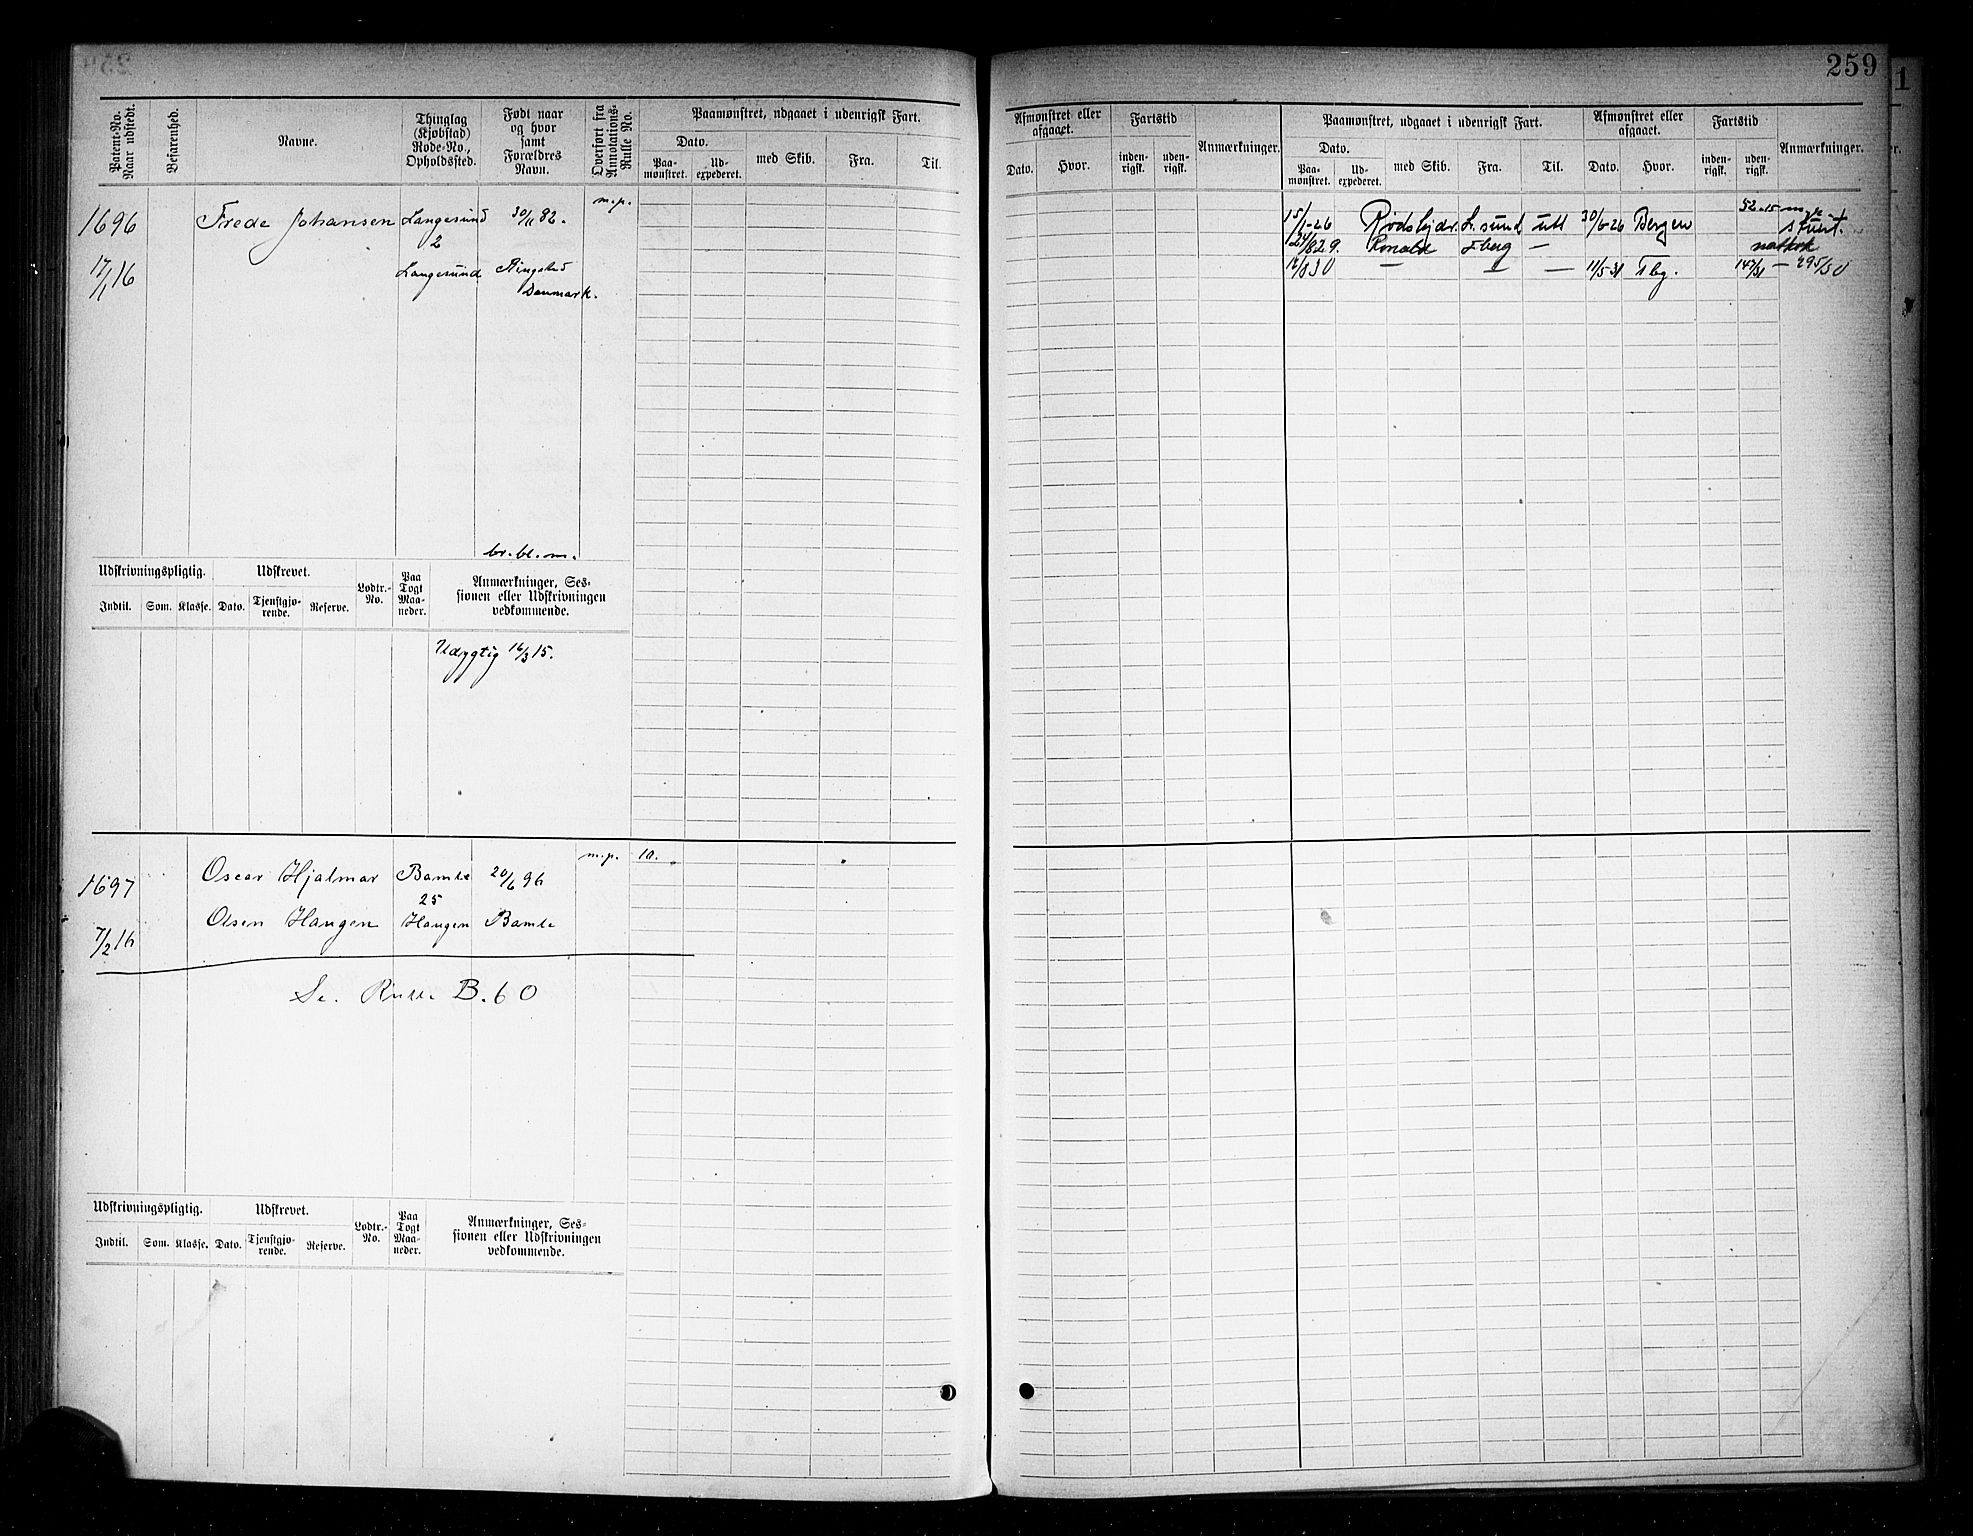 259
Patent-No. Naar udstedt.
Befarenhed.
Navne.
Thinglag (Kjøbstad) Rode-No., Opholdssted.
Født naar og hvor samt Forældres Navn.
Overført fra Annotations-Rulle No.
Paamønstret, udgaaet i udenrigsk Fart.
Dato.
Paamønstret.
Udexpederet.
med Skib.
Fra.
Til.
1696
Frede Johansen
Langesund
2
30/11 82.
m.p.
17/1 16
Langesund
Ringsted
Danmark.
br. bl. m.
Udskrivningspligtig.
Udskrevet.
Lodtr.-No.
Paa Togt Maaneder.
Anmærkninger, Sessionen eller Udskrivningen vedkommende.
Indtil.
Som.
Klasse.
Dato.
Tjenstgjørende.
Reserve.
Udygtig 16/3 15.
1697
Oscar Hjalmar
Bamle
25
20/6 96
m.p.
10.
7/2 16
Olsen Haugen
Haugen
Bamle
Se. Rulle B. 60
Udskrivningspligtig.
Udskrevet.
Lodtr.-No.
Paa Togt Maaneder.
Anmærkninger, Sessionen eller Udskrivningen vedkommende.
Indtil.
Som.
Klasse.
Dato.
Tjenstgjørende.
Reserve.
Afmønstret eller afgaaet.
Fartstid
Anmærkninger.
Dato.
Hvor.
indenrigsk.
udenrigsk.
Paamønstret, udgaaet i udenrigsk Fart.
Dato.
Paamønstret.
Udexpederet.
med Skib.
Fra.
Til.
Afmønstret eller afgaaet.
Dato.
Hvor.
Fartstid
indenrigsk.
udenrigsk.
Anmærkninger.
15/1-26
L.sund
utl
30/6-26
Bergen
52-15
stuert.
24/8 29.
Ronald
Tberg
—
16/8 30
—
—
—
11/5-31
Tbg.
147/31
—
295/30